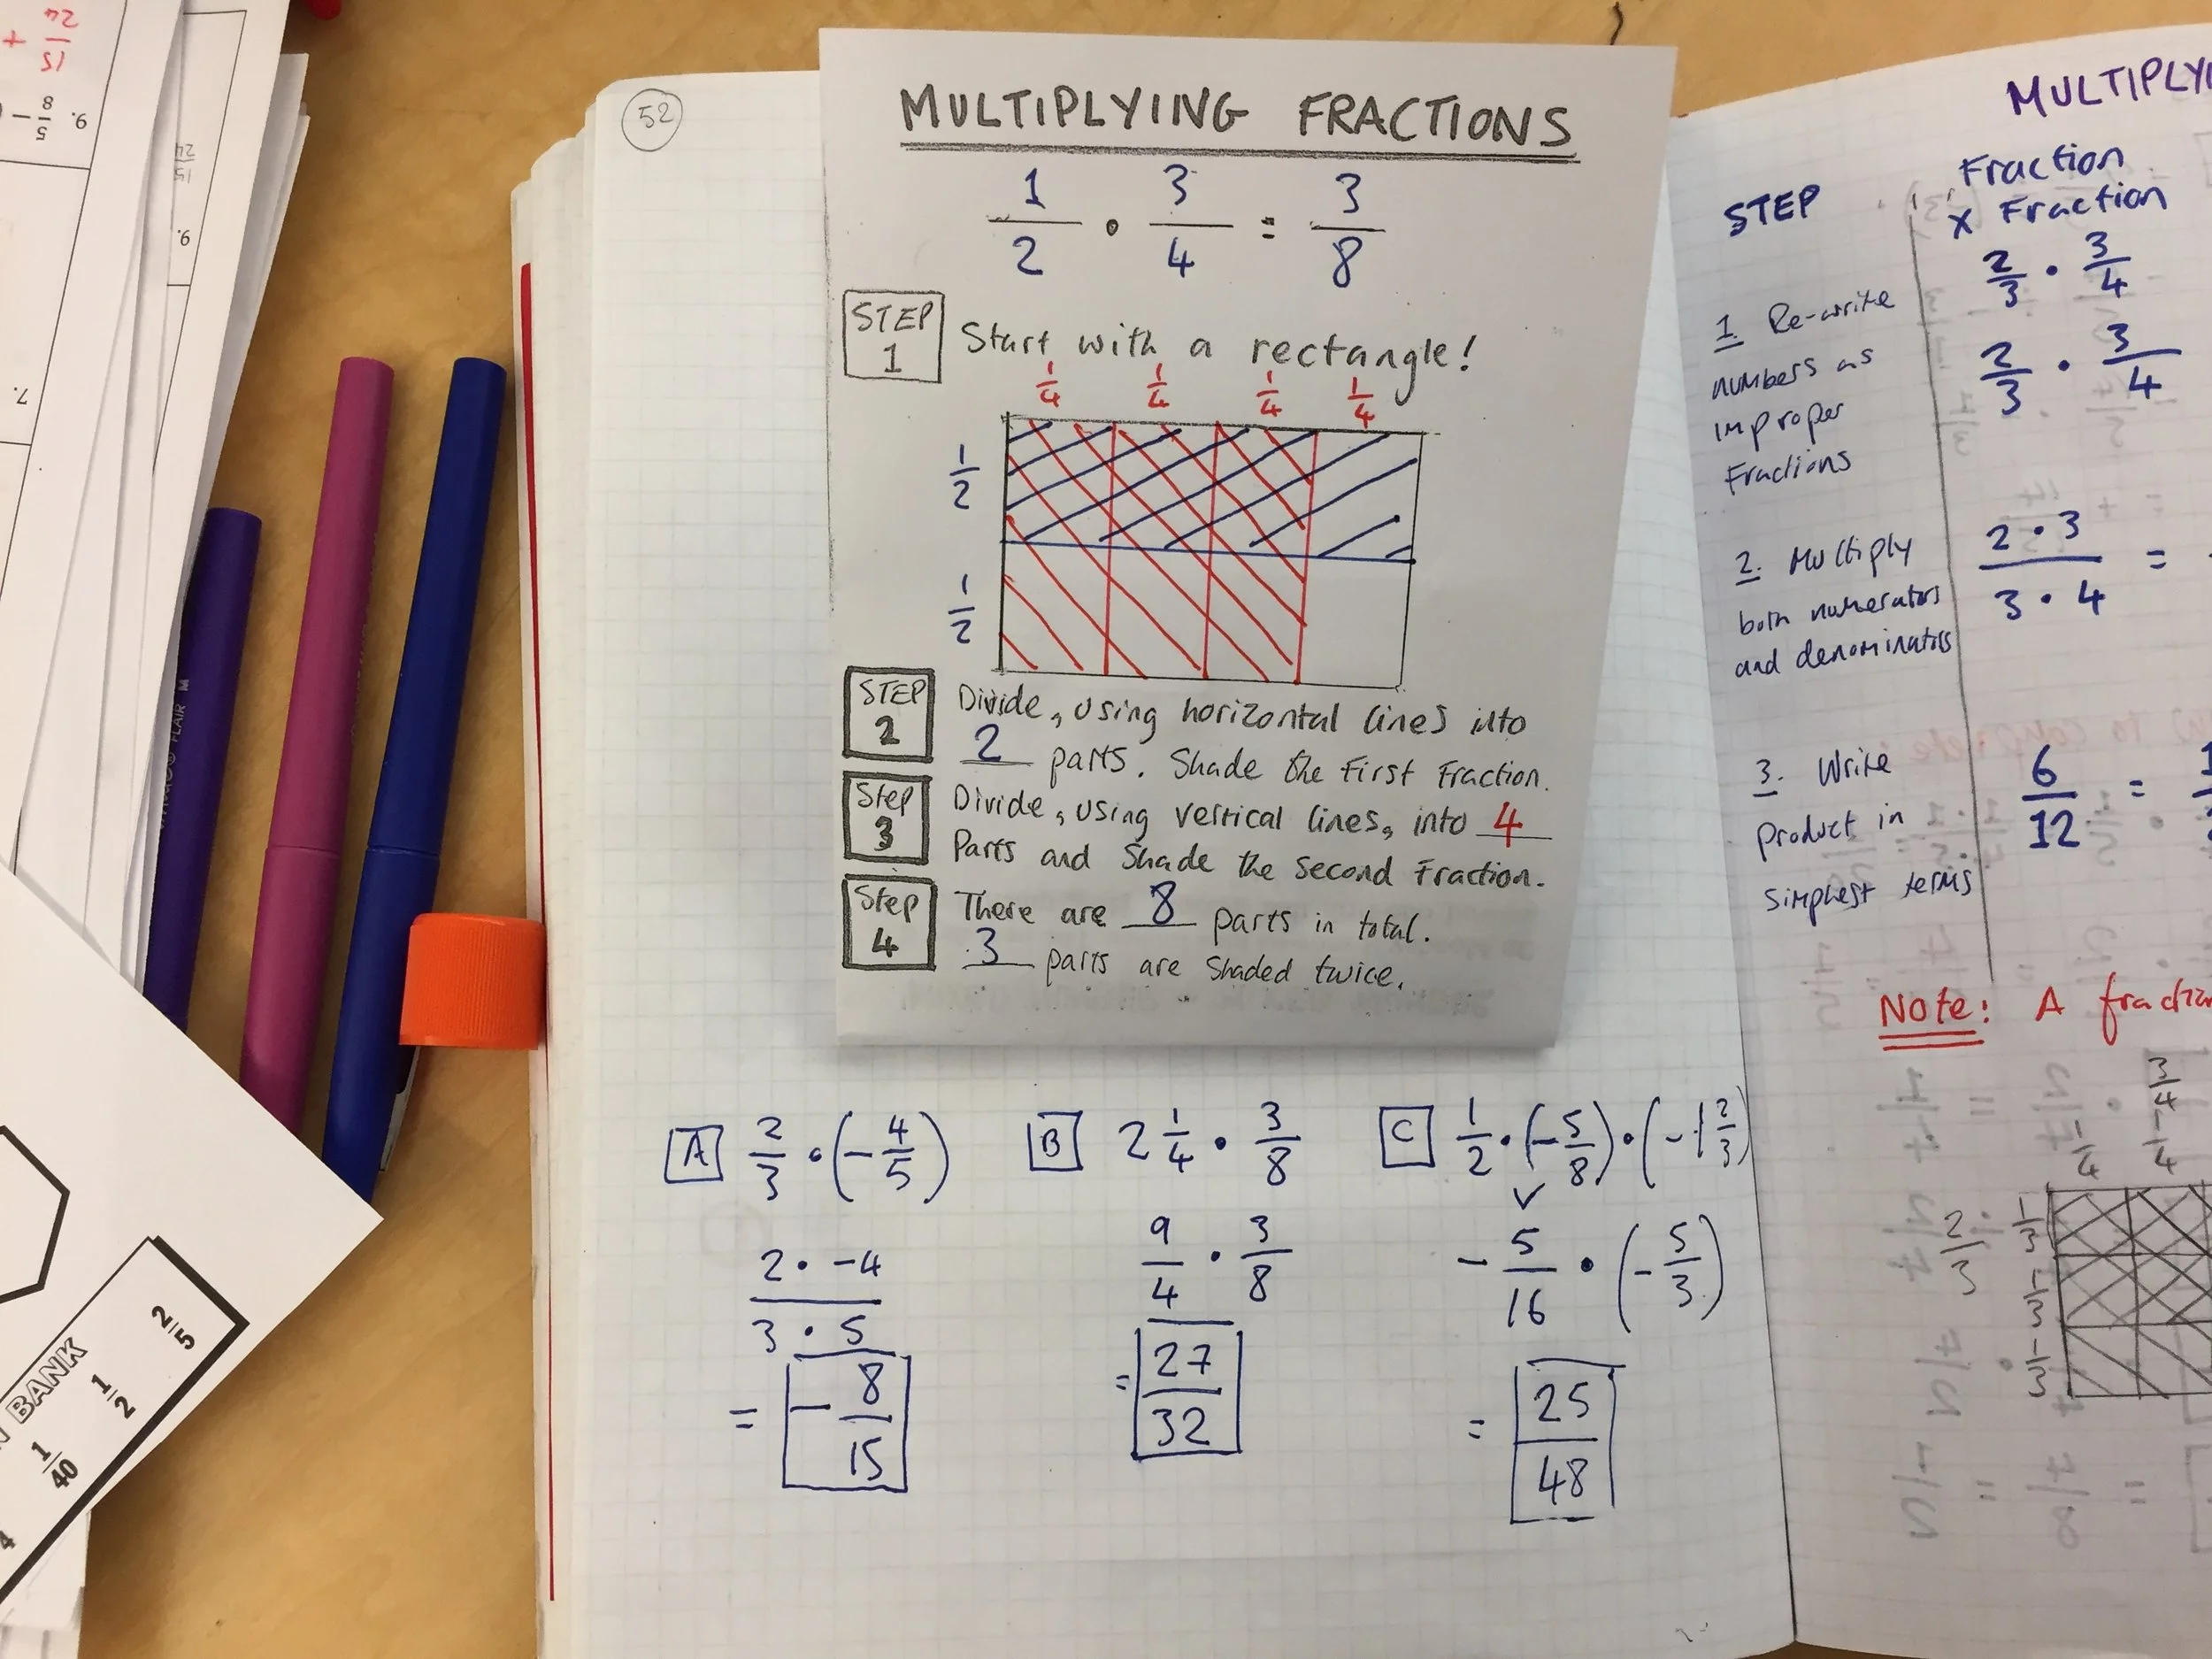 52
MULTIPLYING FRACTIONS
1/2 • 3/4 = 3/8
STEP 1 Start with a rectangle!
1/4 1/4 1/4 1/4
1/2
1/2
STEP 2 Divide, using horizontal lines into
2 parts. Shade the First Fraction.
Step 3 Divide, using vertical lines, into 4
Parts and Shade the Second Fraction.
Step 4 There are 8 parts in total.
3 parts are Shaded twice.
A 2/3 • (-4/5)
2 • -4 / 3 • 5
= -8/15
B 2 1/4 • 3/8
9/4 • 3/8
= 27/32
C 1/2 • (-5/8) • (-1 2/3)
-5/16 • (-5/3)
= 25/48
STEP
Fraction
x Fraction
2/3 • 3/4
1. Re-write
numbers as
improper
Fractions
2/3 • 3/4
2. Multiply
both numerators
and denominators
2 • 3 / 3 • 4 =
3. Write
product in
simplest terms
6/12 =
Note: A
3/4
1/4 1/4
2/3
1/3
1/3
1/3
BANK
2/5
1/2
1/40
9. 5/8 -
15/24 +
9.
15/24
7.
FLAIR M